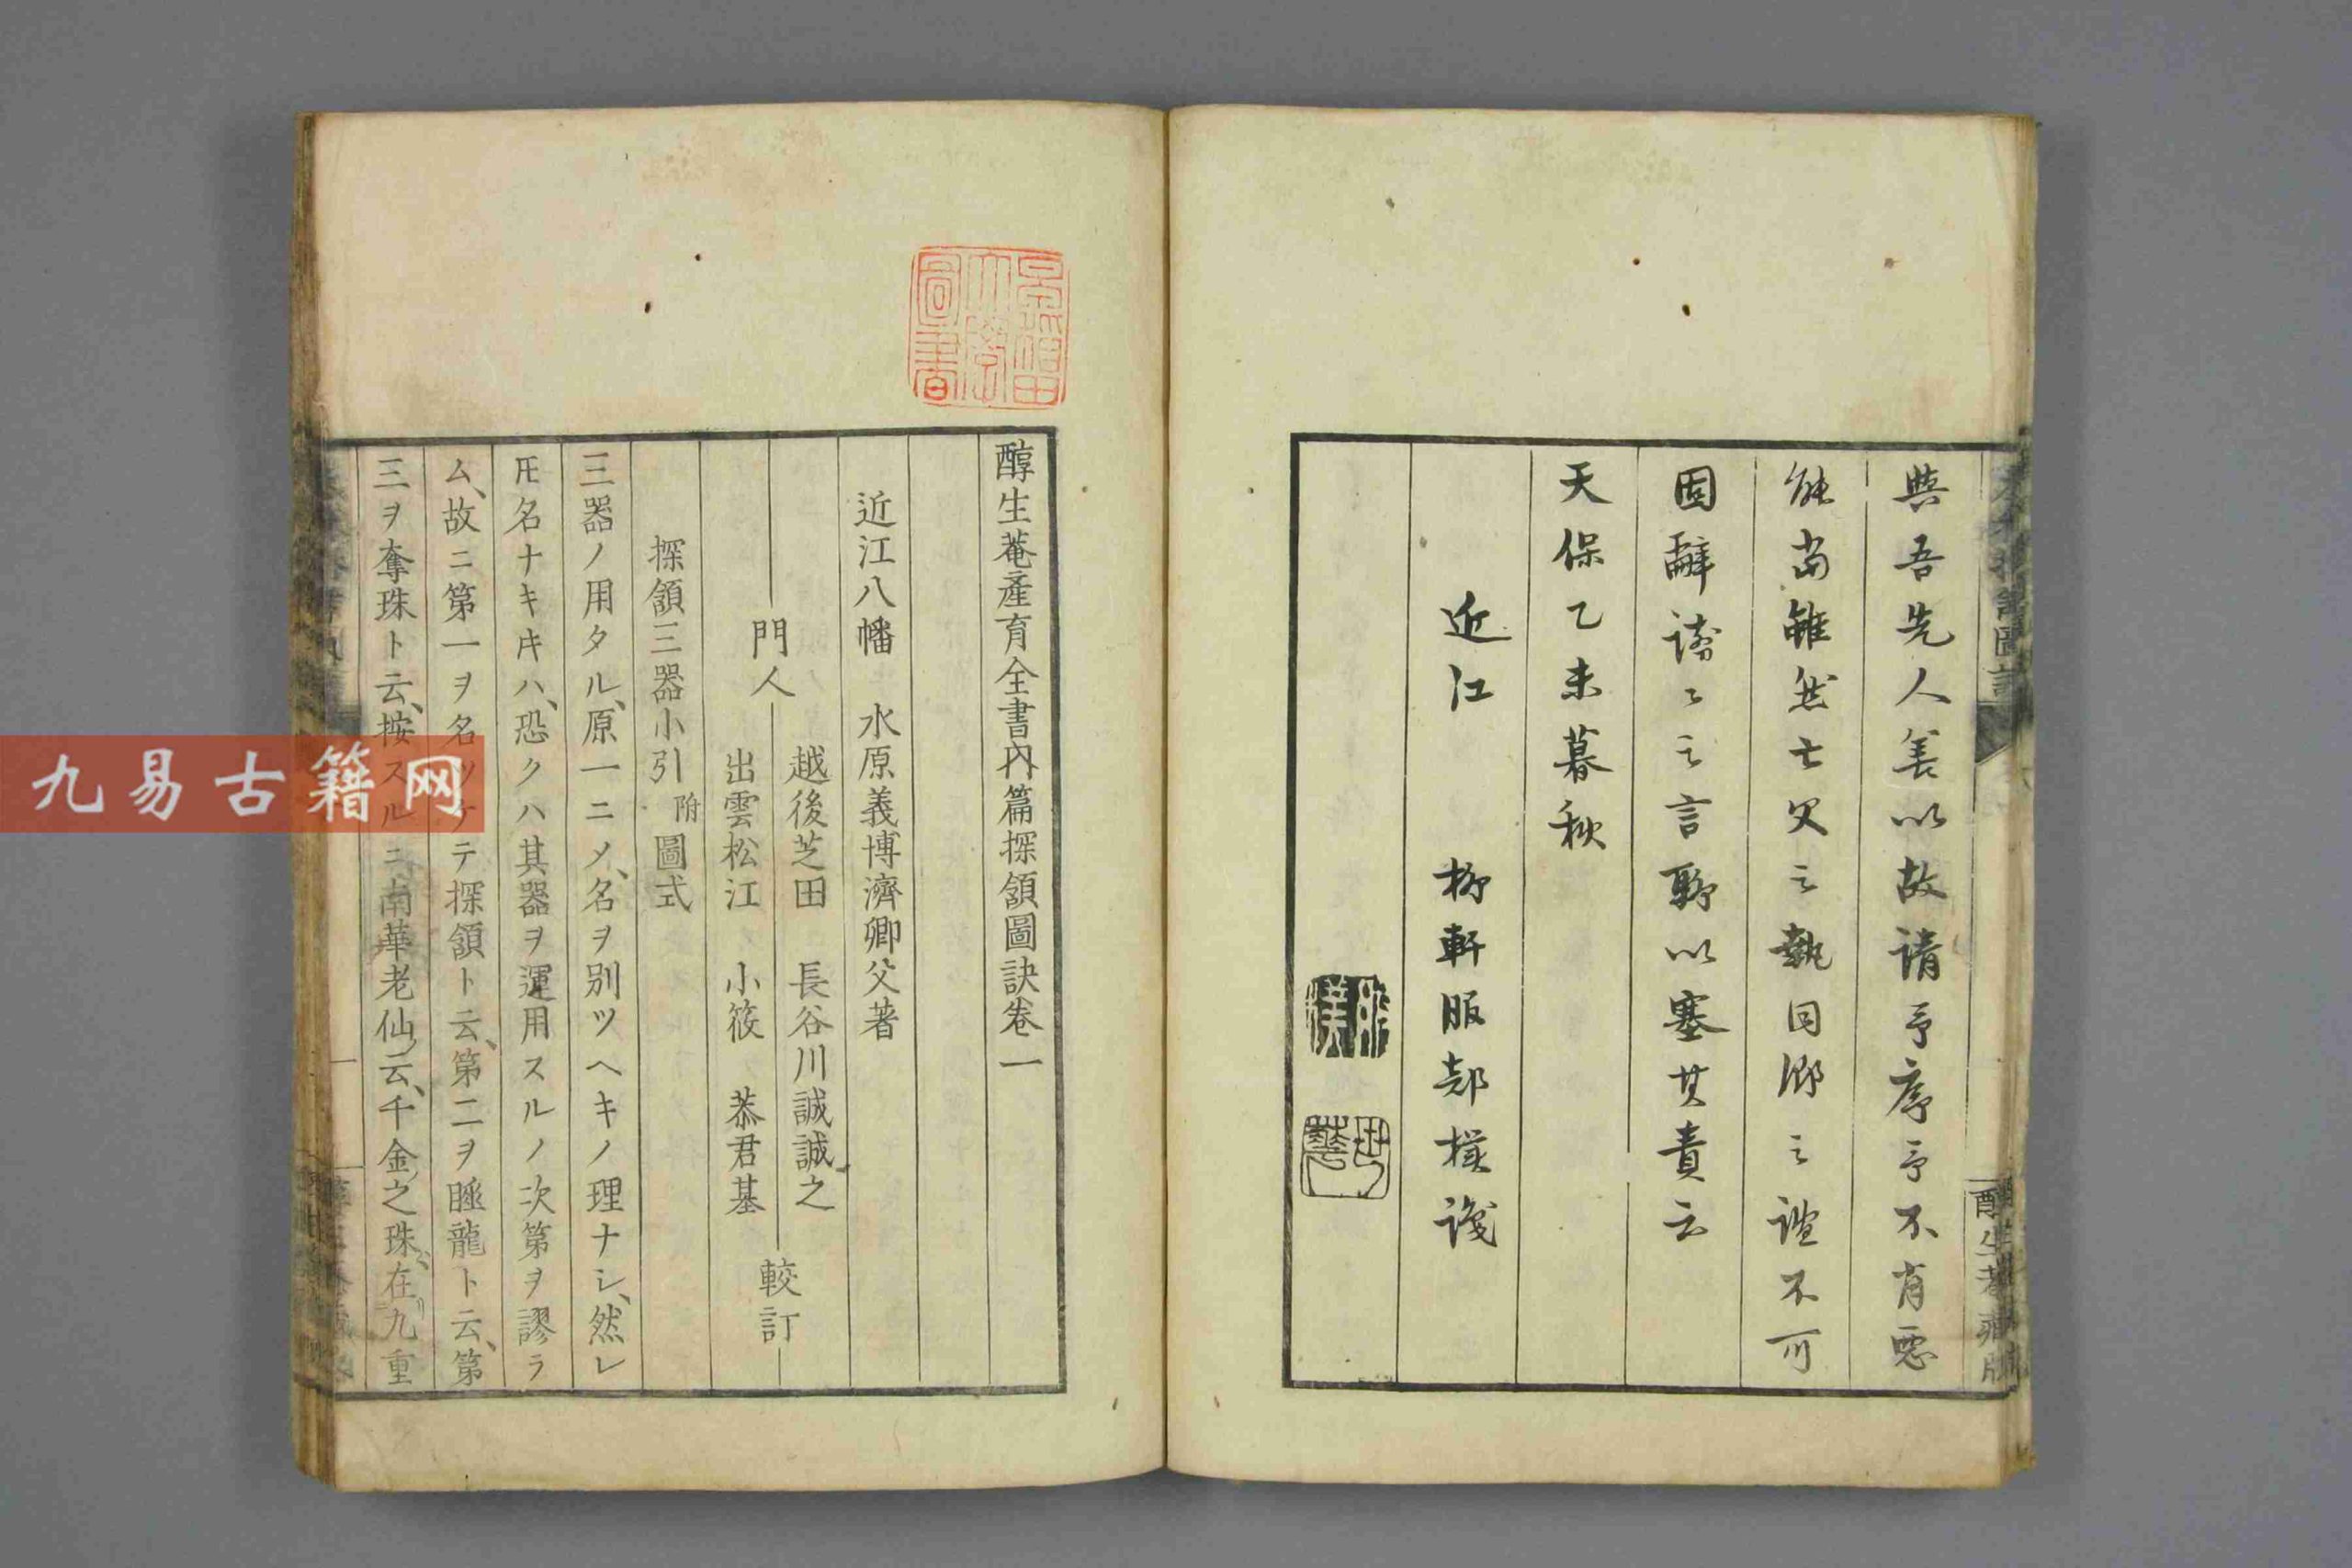 與吾先人善以故請予序予不肖惡
能當雖然亡父之執同鄉之誼不可
固辭諸〻之言聊以塞其責云
天保乙未暮秋
近江 柳軒服部 譔
醇生菴藏版
早稻田大學圖書
醇生菴產育全書內篇探頷圖訣卷一
近江八幡 水原義博濟卿父著
門人
越後芝田 長谷川誠誠之
出雲松江 小筱 恭君基
較訂
探頷三器小引 附圖式
三器ノ用タル、原一ニメ、名ヲ別ツヘキノ理ナシ、然レ
𪜈名ナキ𪜀ハ、恐クハ其器ヲ運用スルノ次第ヲ謬ラ
ム、故ニ第一ヲ名ツケテ探頷ト云、第二ヲ睡龍ト云、第
三ヲ奪珠ト云、按スルニ、南華老仙云、千金之珠、在九重
一
九易古籍网